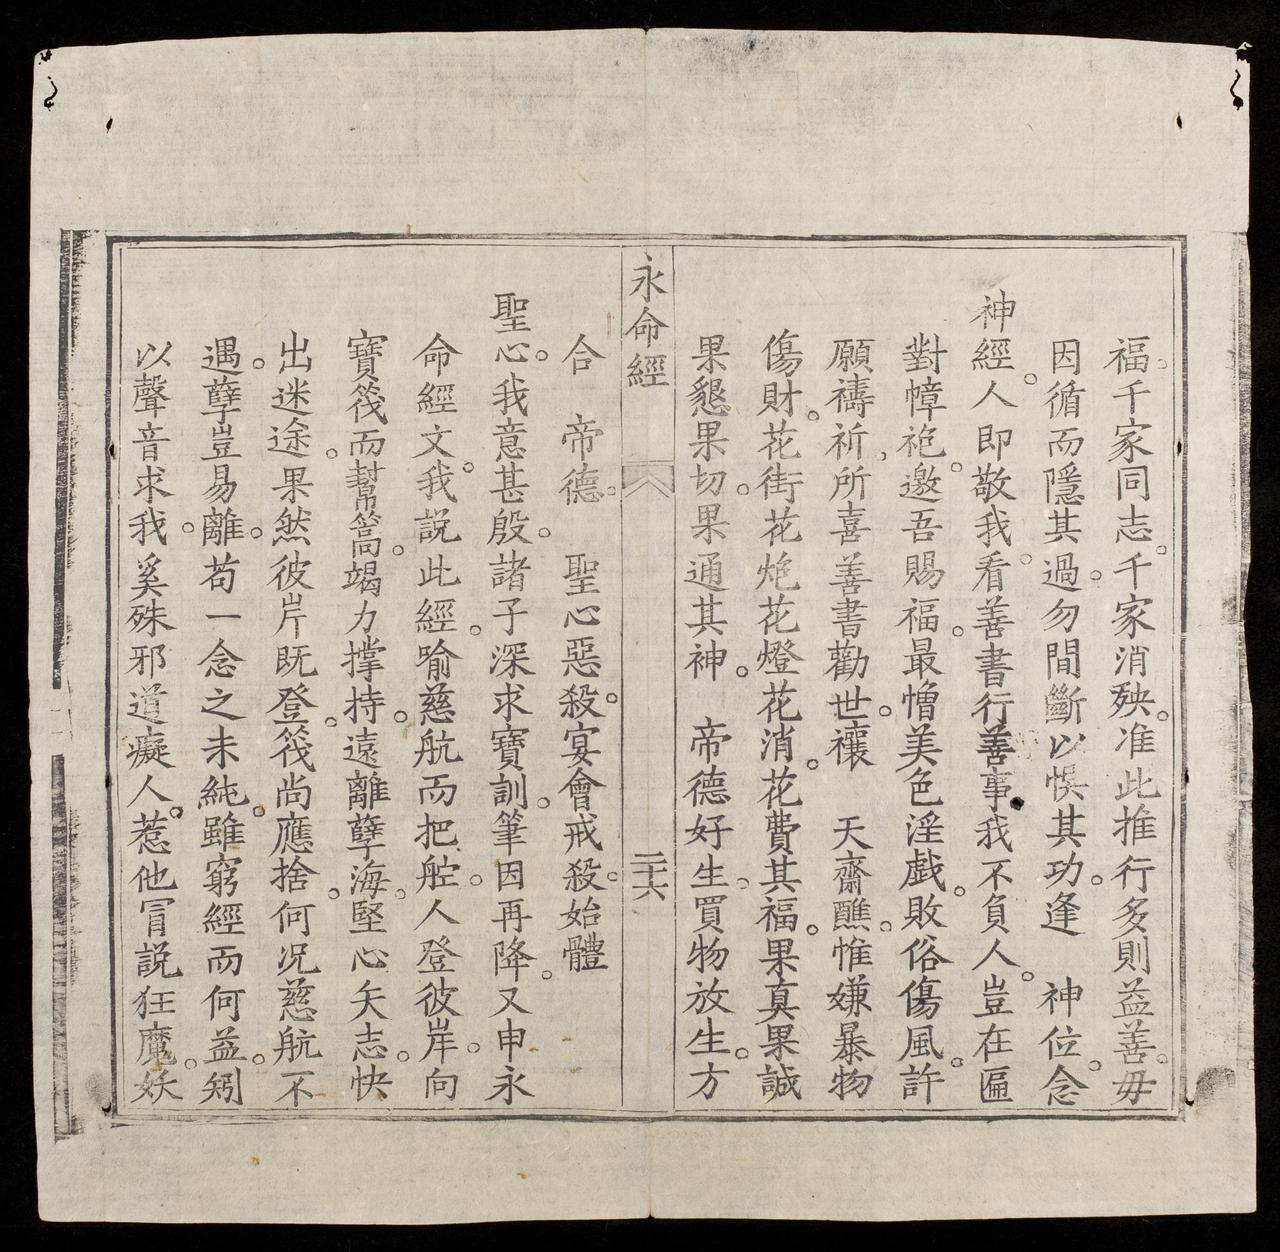 福。千家同志。千家消殃。准此推行多則益善。毋
因循而隱其過。勿間斷以悞其功。逢　神位。念
神經。人即敬我。看善書行善事。我不負人。豈在匾
對幛袍。邀吾賜福。最憎美色淫戲。敗俗傷風。許
願禱祈、所喜善書勸世。禳　天齋醮。惟嫌暴物
傷財。花街花炮花燈花消。花費其福。果真果誠
果懇果切。果通其神。　帝德好生。買物放生。方
永命經
二十六
合　帝德。　聖心惡殺。宴會戒殺。始體
聖心。我意甚殷。諸子深求寶訓。筆因再降。又申永
命經文。我說此經。喻慈航而把舵。人登彼岸。向
寶筏而幫篙。竭力撑持。遠離孽海。堅心矢志。快
出迷途。果然彼岸既登。筏尚應捨。何況慈航不
遇。孽豈易離。苟一念之未純。雖窮經而何益。矧
以聲音求我。奚殊邪道癡人。惹他冒說狂魔。妖